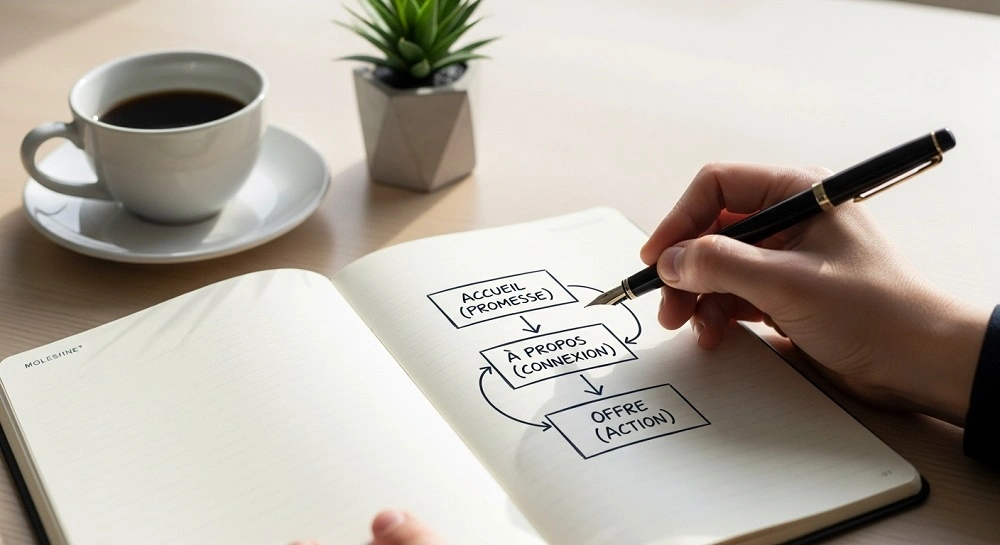 MOLESIINE
ACCUEIL
(PROMESSE)
À PROPOS
(CONNEXION)
OFFRE
(ACTION)